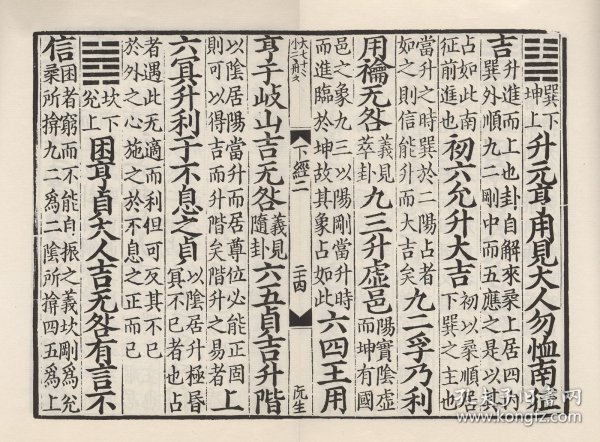 巽下坤上 升元亨用見大人勿恤南征
吉 升進而上也卦自解來柔上居四内
巽外順九二剛中而五應之是以其
占如此南
征前進也 初六允升大吉 初以柔順居
下巽之主也
當升之時巽於二陽占者
如之則信能升而大吉矣 九二孚乃利
用禴无咎 義見
萃卦 九三升虛邑 陽實陰虛
而坤有國
邑之象九三以陽剛當升時
而進臨於坤故其象占如此 六四王用
下經二
二十四
亨于岐山吉无咎 義見
隨卦 六五貞吉升階
以陰居陽當升而居尊位必能正固
則可以得吉而升階矣升之易者 上
六冥升利于不息之貞 以陰居升極昏
冥不已者也占
者遇此无適而利但可反其不已
於外之心施之於不息之正而已
坎下兌上 困亨貞大人吉无咎有言不
信 困者窮而不能自振之義坎剛爲兌
柔所揜九二爲二陰所揜四五爲上
孔夫子旧书网
kongfz.com